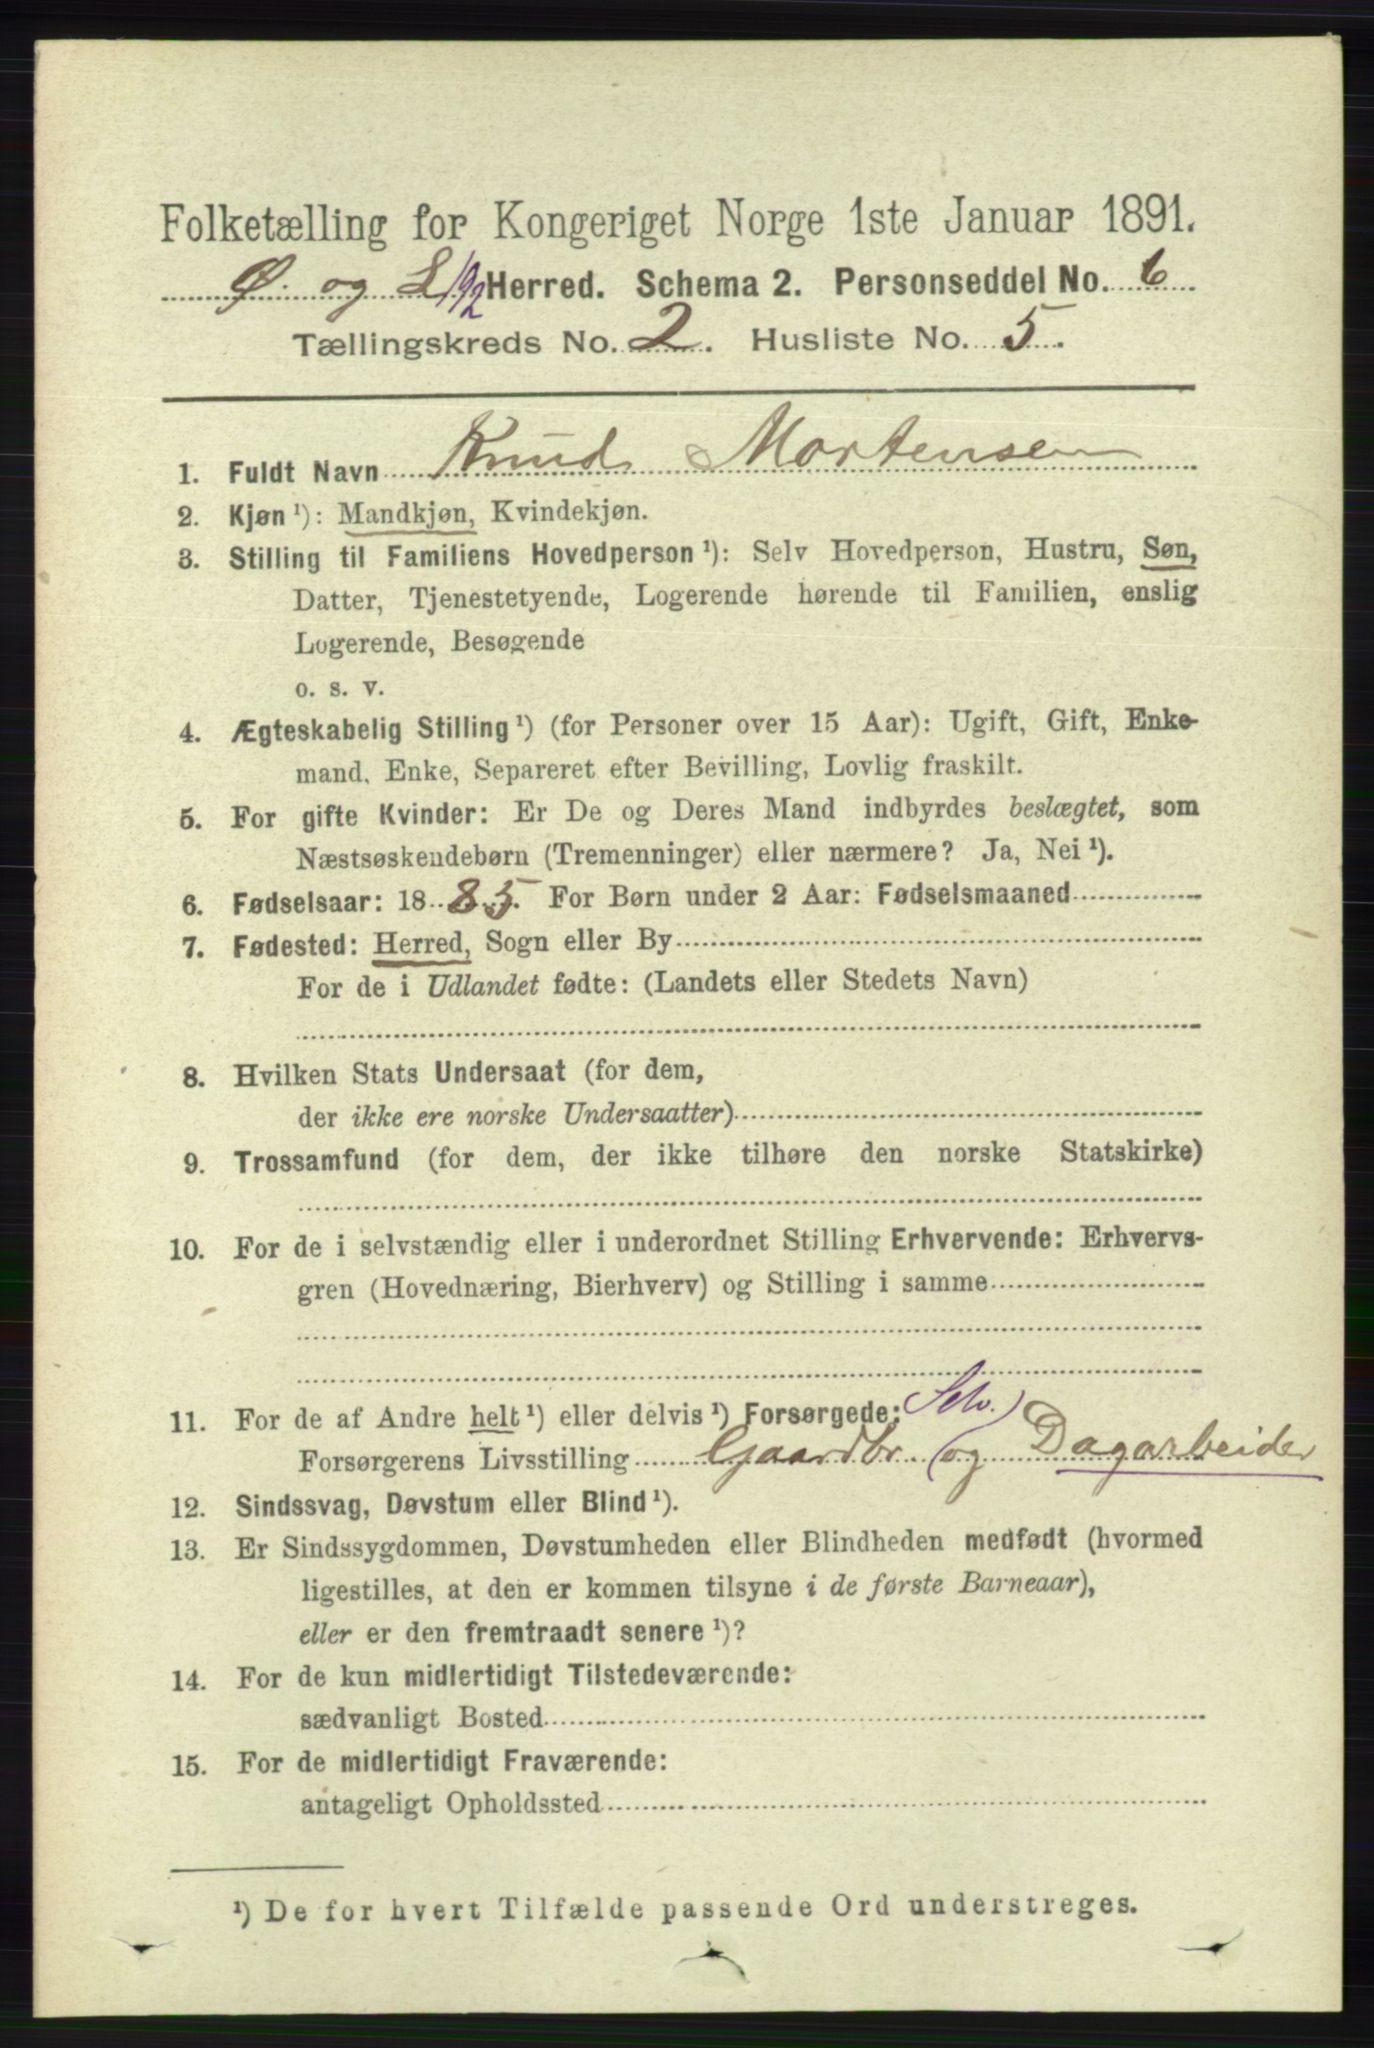 Folketælling for Kongeriget Norge 1ste Januar 1891.
Ø. og L Herred. Schema 2. Personseddel No. 6
Tællingskreds No. 2. Husliste No. 5.
1. Fuldt Navn Knud Mortensen
2. Kjøn ¹): Mandkjøn, Kvindekjøn.
3. Stilling til Familiens Hovedperson ¹): Selv Hovedperson, Hustru, Søn,
Datter, Tjenestetyende, Logerende hørende til Familien, enslig
Logerende, Besøgende
o. s. v.
4. Ægteskabelig Stilling ¹) (for Personer over 15 Aar): Ugift, Gift, Enke-
mand, Enke, Separeret efter Bevilling, Lovlig fraskilt.
5. For gifte Kvinder: Er De og Deres Mand indbyrdes beslægtet, som
Næstsøskendebørn (Tremenninger) eller nærmere? Ja, Nei ¹).
6. Fødselsaar: 18 85. For Børn under 2 Aar: Fødselsmaaned
7. Fødested: Herred, Sogn eller By
For de i Udlandet fødte: (Landets eller Stedets Navn)
8. Hvilken Stats Undersaat (for dem,
der ikke ere norske Undersaatter)
9. Trossamfund (for dem, der ikke tilhøre den norske Statskirke)
10. For de i selvstændig eller i underordnet Stilling Erhvervende: Erhvervs-
gren (Hovednæring, Bierhverv) og Stilling i samme
Selv.
11. For de af Andre helt ¹) eller delvis ¹) Forsørgede:
Forsørgerens Livsstilling Gaardbr. (og Dagarbeider
12. Sindssvag, Døvstum eller Blind ¹).
13. Er Sindssygdommen, Døvstumheden eller Blindheden medfødt (hvormed
ligestilles, at den er kommen tilsyne i de første Barneaar),
eller er den fremtraadt senere ¹)?
14. For de kun midlertidigt Tilstedeværende:
sædvanligt Bosted
15. For de midlertidigt Fraværende:
antageligt Opholdssted
¹) De for hvert Tilfælde passende Ord understreges.